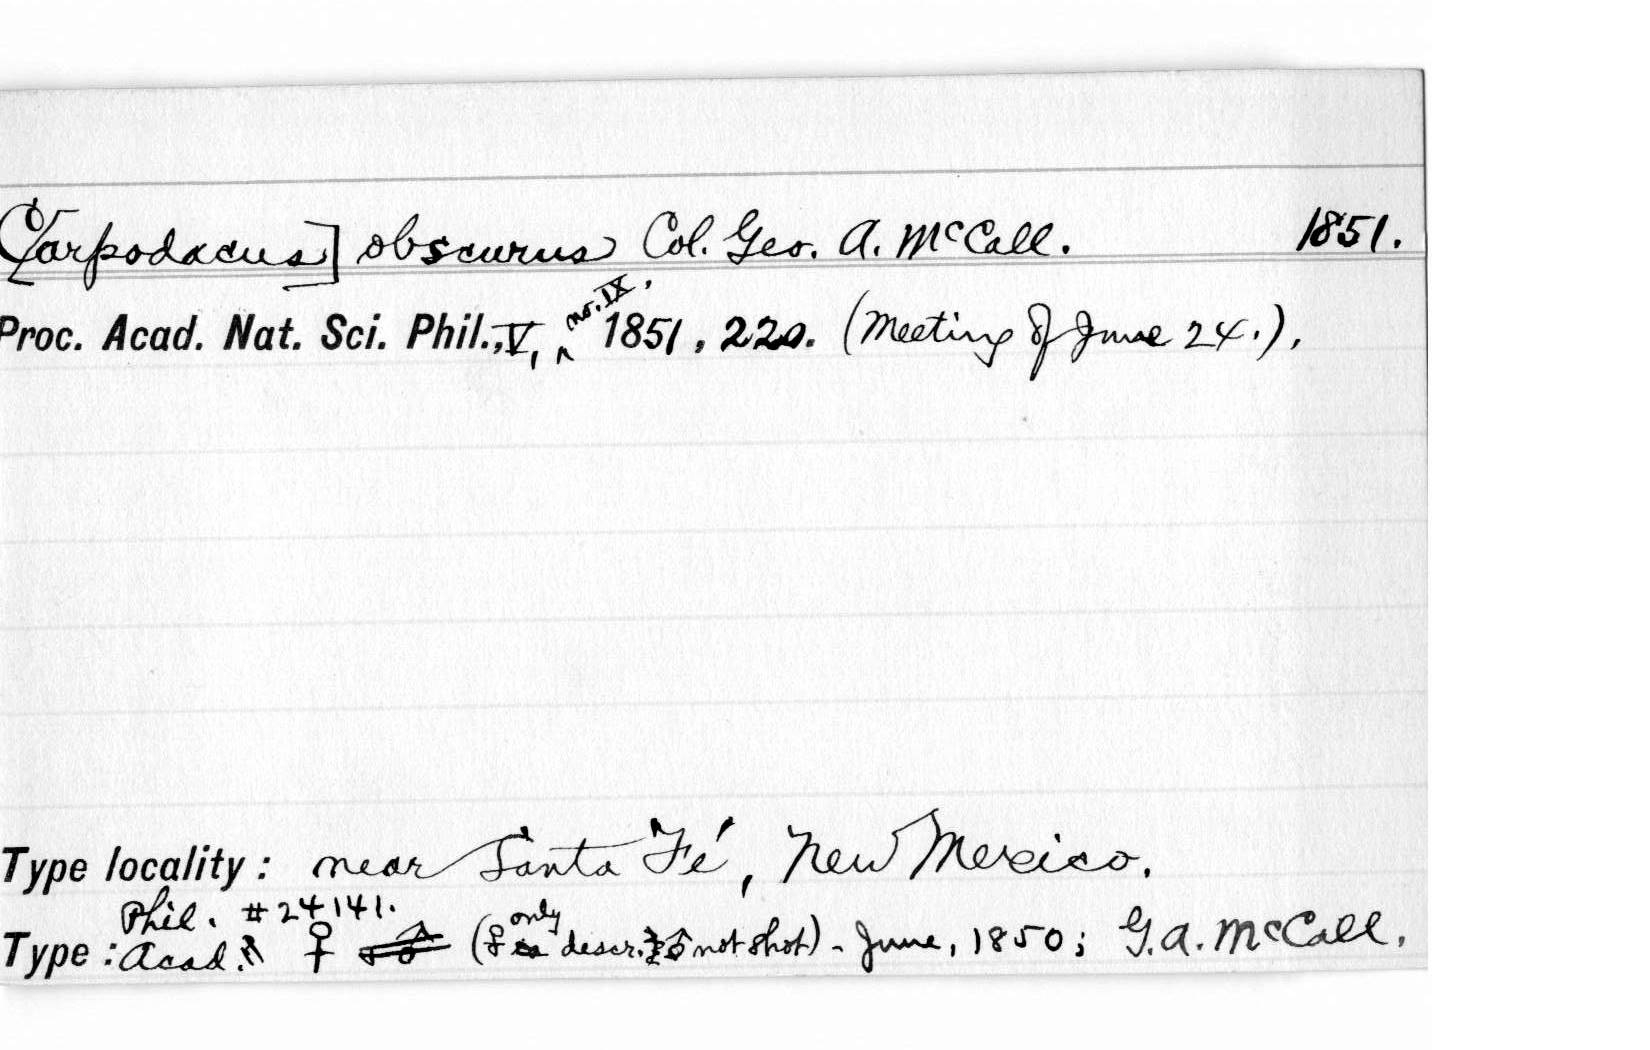 C[arpodacus] obscurus Col. Geo. A. McCall. 1851.
Proc. Acad. Nat. Sci. Phil., V, no. IX, 1851, 220. (Meeting of June 24.).
Type locality: near Santa Fé, New Mexico.
Phil. #24141.
Type: Acad. ♀ (♀ only descr. ♂ not shot) - June, 1850; G.A. McCall.